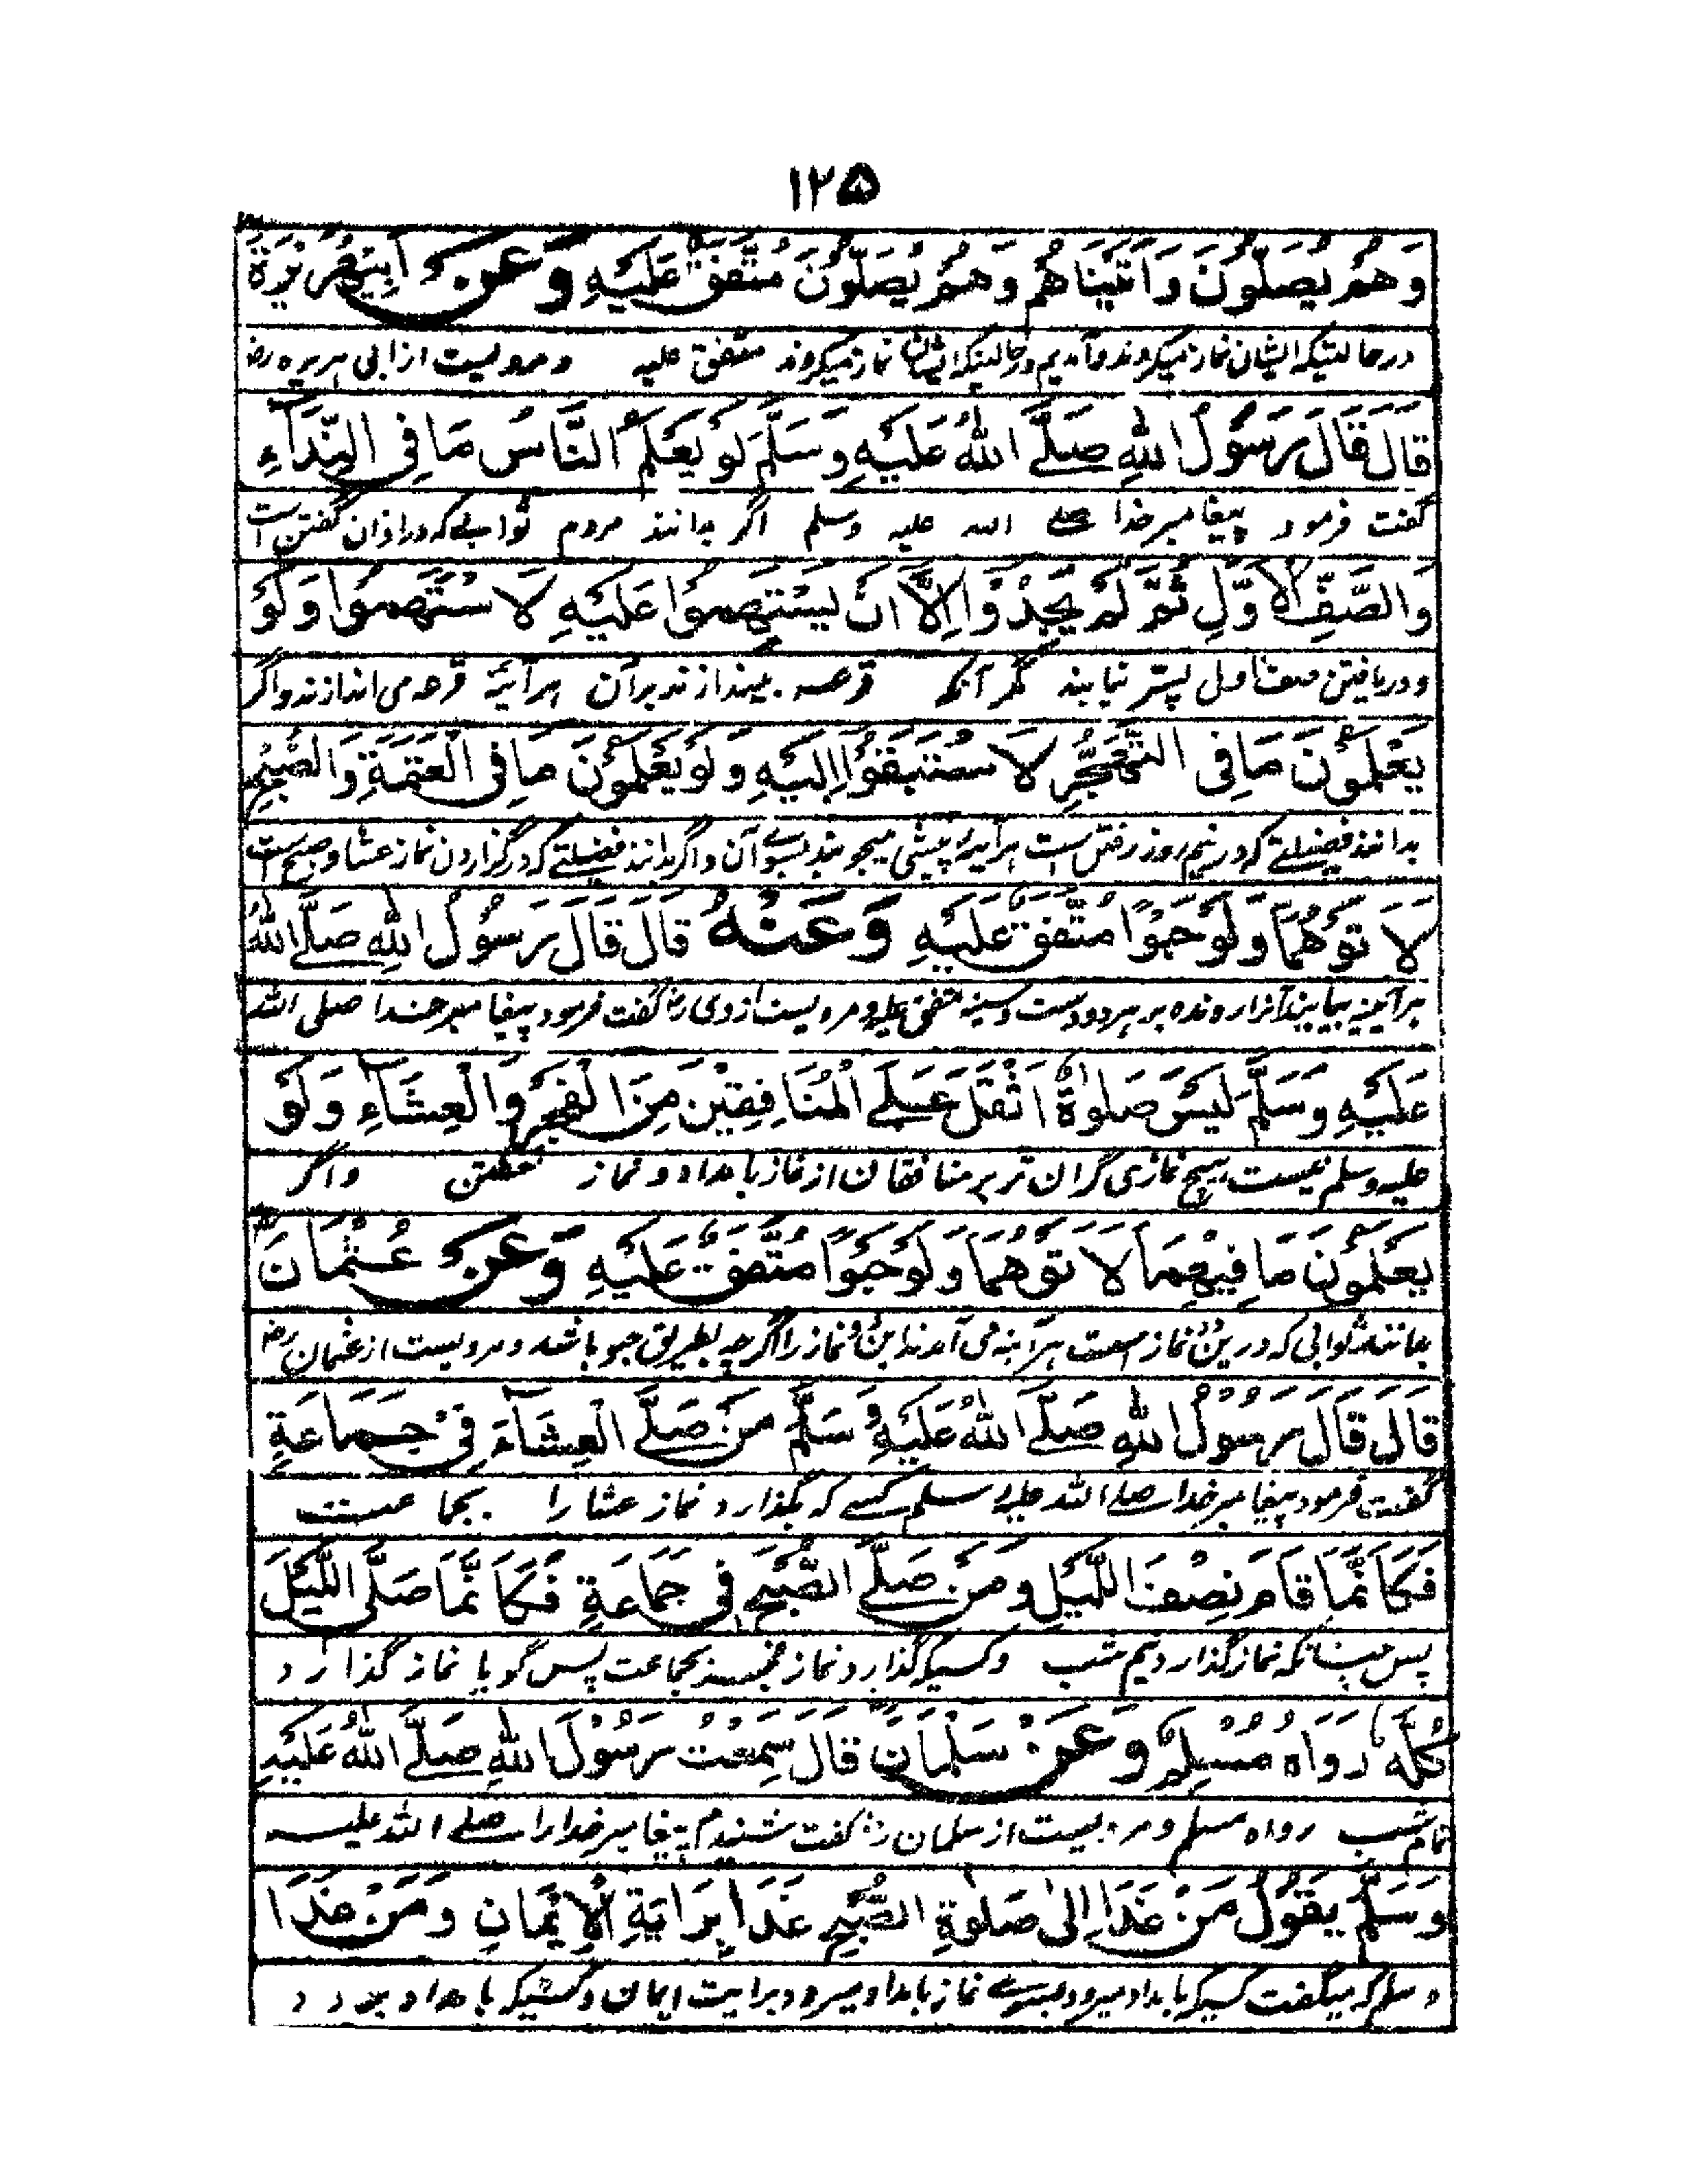 ۱۲۵
وَهُمْ يُصَلُّوْنَ وَاَتَيْنَاهُمْ وَهُمْ يُصَلُّوْنَ مُتَّفَقٌ عَلَيْهِ وَعَنْ اَبِيْ هُرَيْرَةَ
درحالتیکه ایشان نماز میکردند و آمدیم درحالتیکه ایشان نماز میکردند متفق علیه ومرویست از ابی هریره رض
قَالَ قَالَ رَسُوْلُ اللهِ صَلَّے اللهُ عَلَيْهِ وَسَلَّمَ لَوْ يَعْلَمُ النَّاسُ مَا فِى النِّدَآءِ
گفت فرمود پیغامبر خدا صلے الله علیه وسلم اگر بدانند مردم ثوابے که در اذان گفتن است
وَالصَّفِّ الْاَوَّلِ ثُمَّ لَمْ يَجِدُوْا اِلَّا اَنْ يَسْتَهِمُوْا عَلَيْهِ لَاسْتَهَمُوْا وَلَوْ
و دریافتن صف اول پستر نیابند مگر آنکه قرعه بیندازند برآن هرآئینه قرعه می اندازند واگر
يَعْلَمُوْنَ مَا فِى التَّهْجِيْرِ لَاسْتَبَقُوْا اِلَيْهِ وَلَوْ يَعْلَمُوْنَ مَا فِى الْعَتَمَةِ وَالصُّبْحِ
بدانند فضیلتے که در نیم روز رفتن است هرآئینه پیشی میجویند بسوے آن واگر بدانند فضیلتے که در گزاردن نماز عشا وصبح است
لَاَتَوْهُمَا وَلَوْ حَبْوًا مُتَّفَقٌ عَلَيْهِ وَعَنْهُ قَالَ قَالَ رَسُوْلُ اللهِ صَلَّے اللهُ
هرآئینه بیایند آنرا رونده بر هر دو دست وسینه متفق علیه ومرویست از وی رض گفت فرمود پیغامبر خدا صلی الله
عَلَيْهِ وَسَلَّمَ لَيْسَ صَلٰوةٌ اَثْقَلَ عَلَے الْمُنَافِقِيْنَ مِنَ الْفَجْرِ وَالْعِشَآءِ وَلَوْ
علیه وسلم نیست هیچ نمازی گران تر بر منافقان از نماز بامداد و نماز خفتن واگر
يَعْلَمُوْنَ مَا فِيْهِمَا لَاَتَوْهُمَا وَلَوْ حَبْوًا مُتَّفَقٌ عَلَيْهِ وَعَنْ عُثْمَانَ
بدانند ثوابی که درین نماز است هرآئینه می آمدند این نماز را اگرچه بطریق حبو باشد ومرویست از عثمان رض
قَالَ قَالَ رَسُوْلُ اللهِ صَلَّے اللهُ عَلَيْهِ وَسَلَّمَ مَنْ صَلَّے الْعِشَآءَ فِىْ جَمَاعَةٍ
گفت فرمود پیغامبر خدا صلے الله علیه وسلم کسے که بگذارد نماز عشا را بجماعت
فَكَاَنَّمَا قَامَ نِصْفَ اللَّيْلِ وَمَنْ صَلَّے الصُّبْحَ فِى جَمَاعَةٍ فَكَاَنَّمَا صَلَّى اللَّيْلَ
پس چنانکه نماز گذارد نیم شب وکسیکه گذارد نماز بجماعت پس گویا نماز گذارد
كُلَّهٗ رَوَاهُ مُسْلِمٌ وَعَنْ سَلْمَانَ قَالَ سَمِعْتُ رَسُوْلَ اللهِ صَلَّے اللهُ عَلَيْهِ
تمام شب رواه مسلم ومرویست از سلمان رض گفت شنیدم پیغامبر خدا را صلے الله علیه
وَسَلَّمَ يَقُوْلُ مَنْ غَدَا اِلٰى صَلٰوةِ الصُّبْحِ غَدَا بِرَايَةِ الْاِيْمَانِ وَمَنْ غَدَا
وسلم که میگفت کسیکه بامداد میرود بسوے نماز بامداد میرود برایت ایمان وکسیکه بامداد